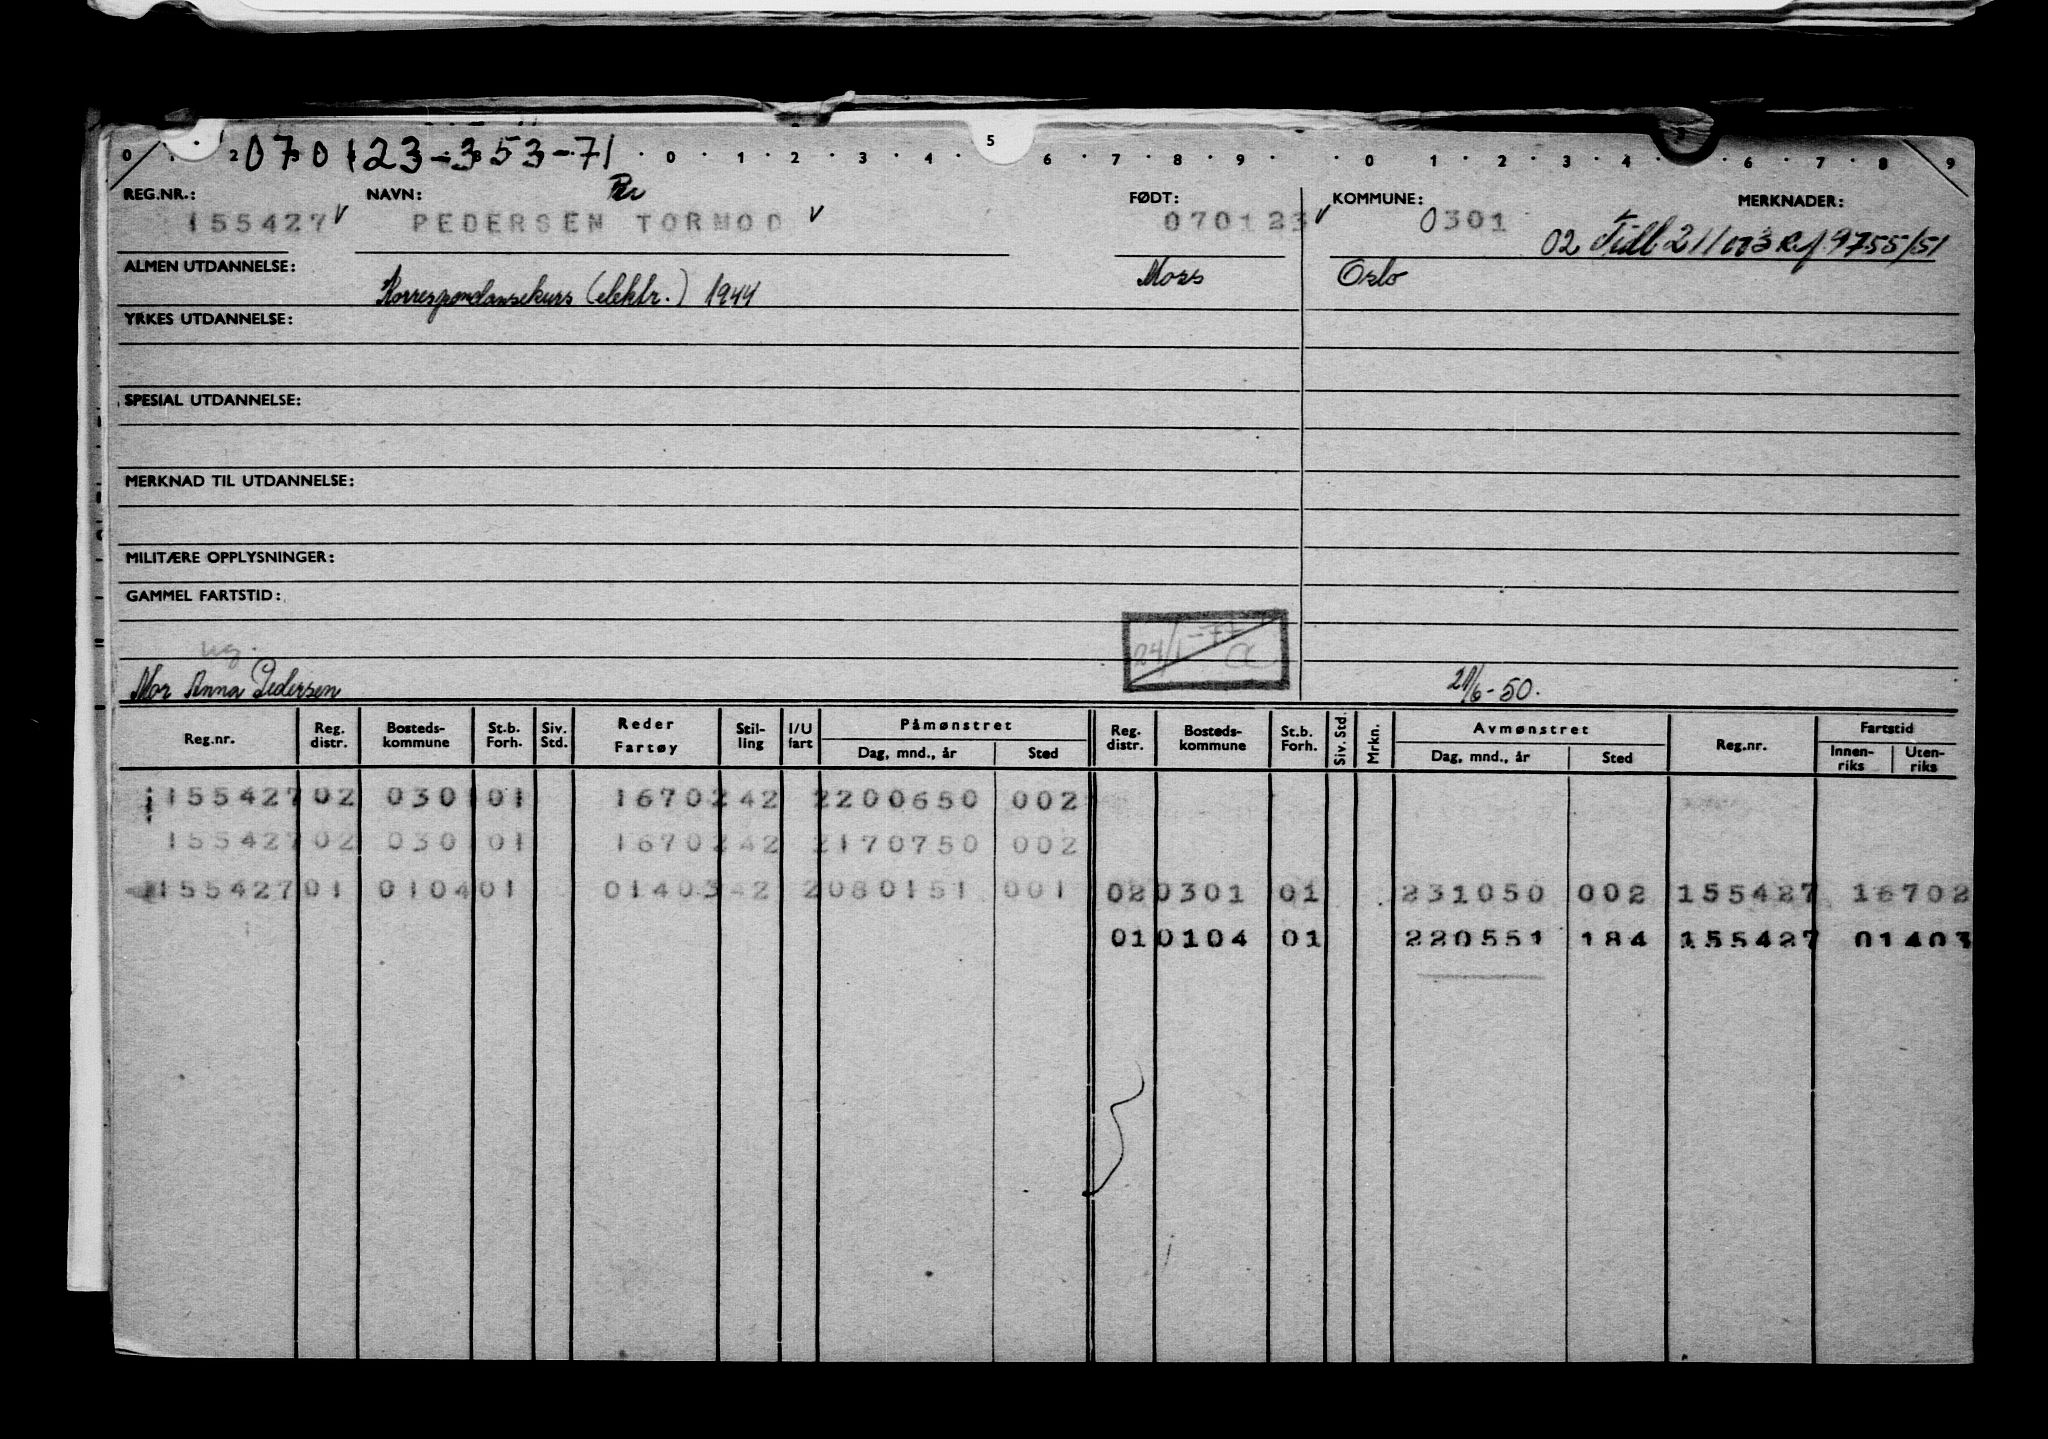 070123-353-71
0 1 2 3 0 1 2 3 4 5 6 7 8 9 0 1 2 3 4 6 7 8 9
REG.NR.: NAVN: FØDT: KOMMUNE: MERKNADER:
155427 PEDERSEN TORMOD 070123 0301
02 211 Ref. 9755/51
ALMEN UTDANNELSE: Korrespondansekurs (elektr.) 1944 Moss Oslo
YRKES UTDANNELSE:
SPESIAL UTDANNELSE:
MERKNAD TIL UTDANNELSE:
MILITÆRE OPPLYSNINGER:
GAMMEL FARTSTID:
ug.
24/1-77
Mor Anna Pedersen 21/6-50.
Reg.nr. Reg. distr. Bosteds-kommune St.b. Forh. Siv. Std. Reder Fartøy Stil-ling I/U fart Påmønstret Dag, mnd., år Sted Reg. distr. Bosteds-kommune St.b. Forh. Siv. Std. Mrkn. Avmønstret Dag, mnd., år Sted Reg.nr. Fartstid Innen-riks Uten-riks
155427 02 0301 01 16702 42 2 200650 002
155427 02 0301 01 16702 42 2 170750 002
155427 01 0104 01 01403 42 2 080151 001 02 0301 01 231050 002 155427 16702
01 0104 01 220551 184 155427 01403